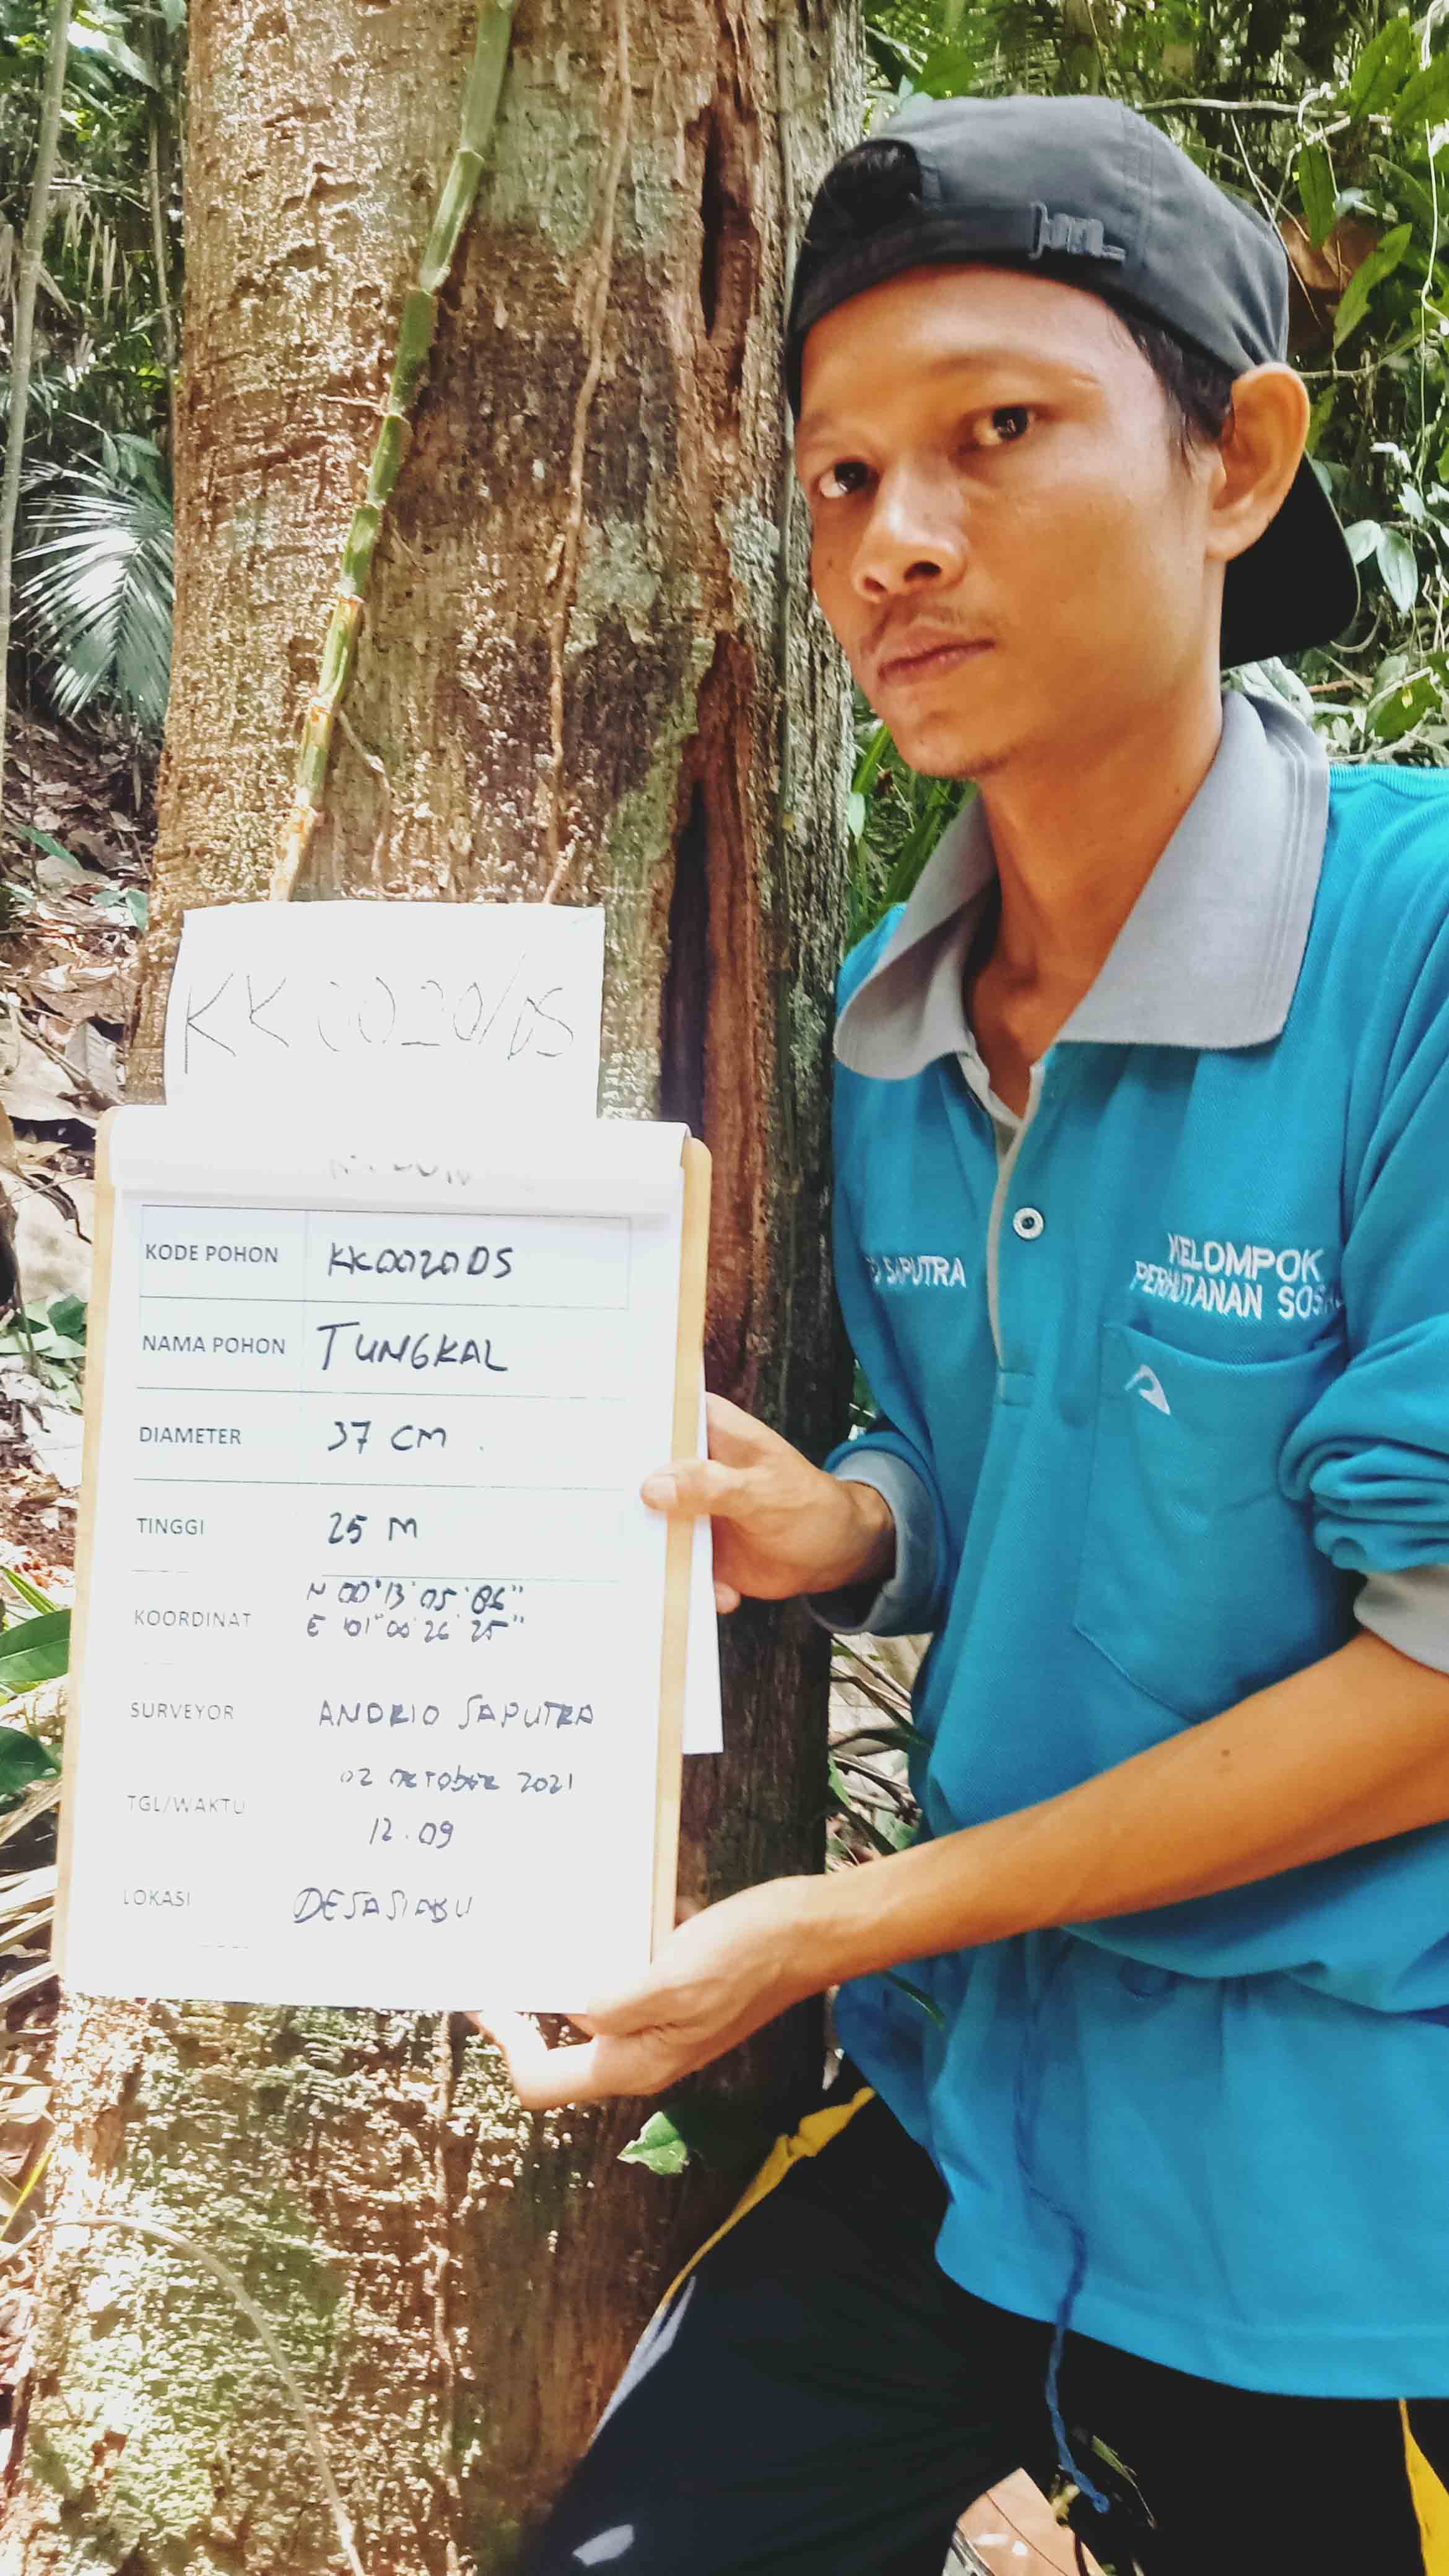 KK0020/DS
KODE POHON KK0020DS
NAMA POHON TUNGKAL
DIAMETER 37 CM
TINGGI 25 M
KOORDINAT N 00° 13' 05' 86"
E 101° 00' 26' 25"
SURVEYOR ANDRIO SAPUTRA
TGL/WAKTU 02 OKTOBER 2021
12.09
LOKASI DESA SIABU
SAPUTRA
KELOMPOK
PERHUTANAN SOS